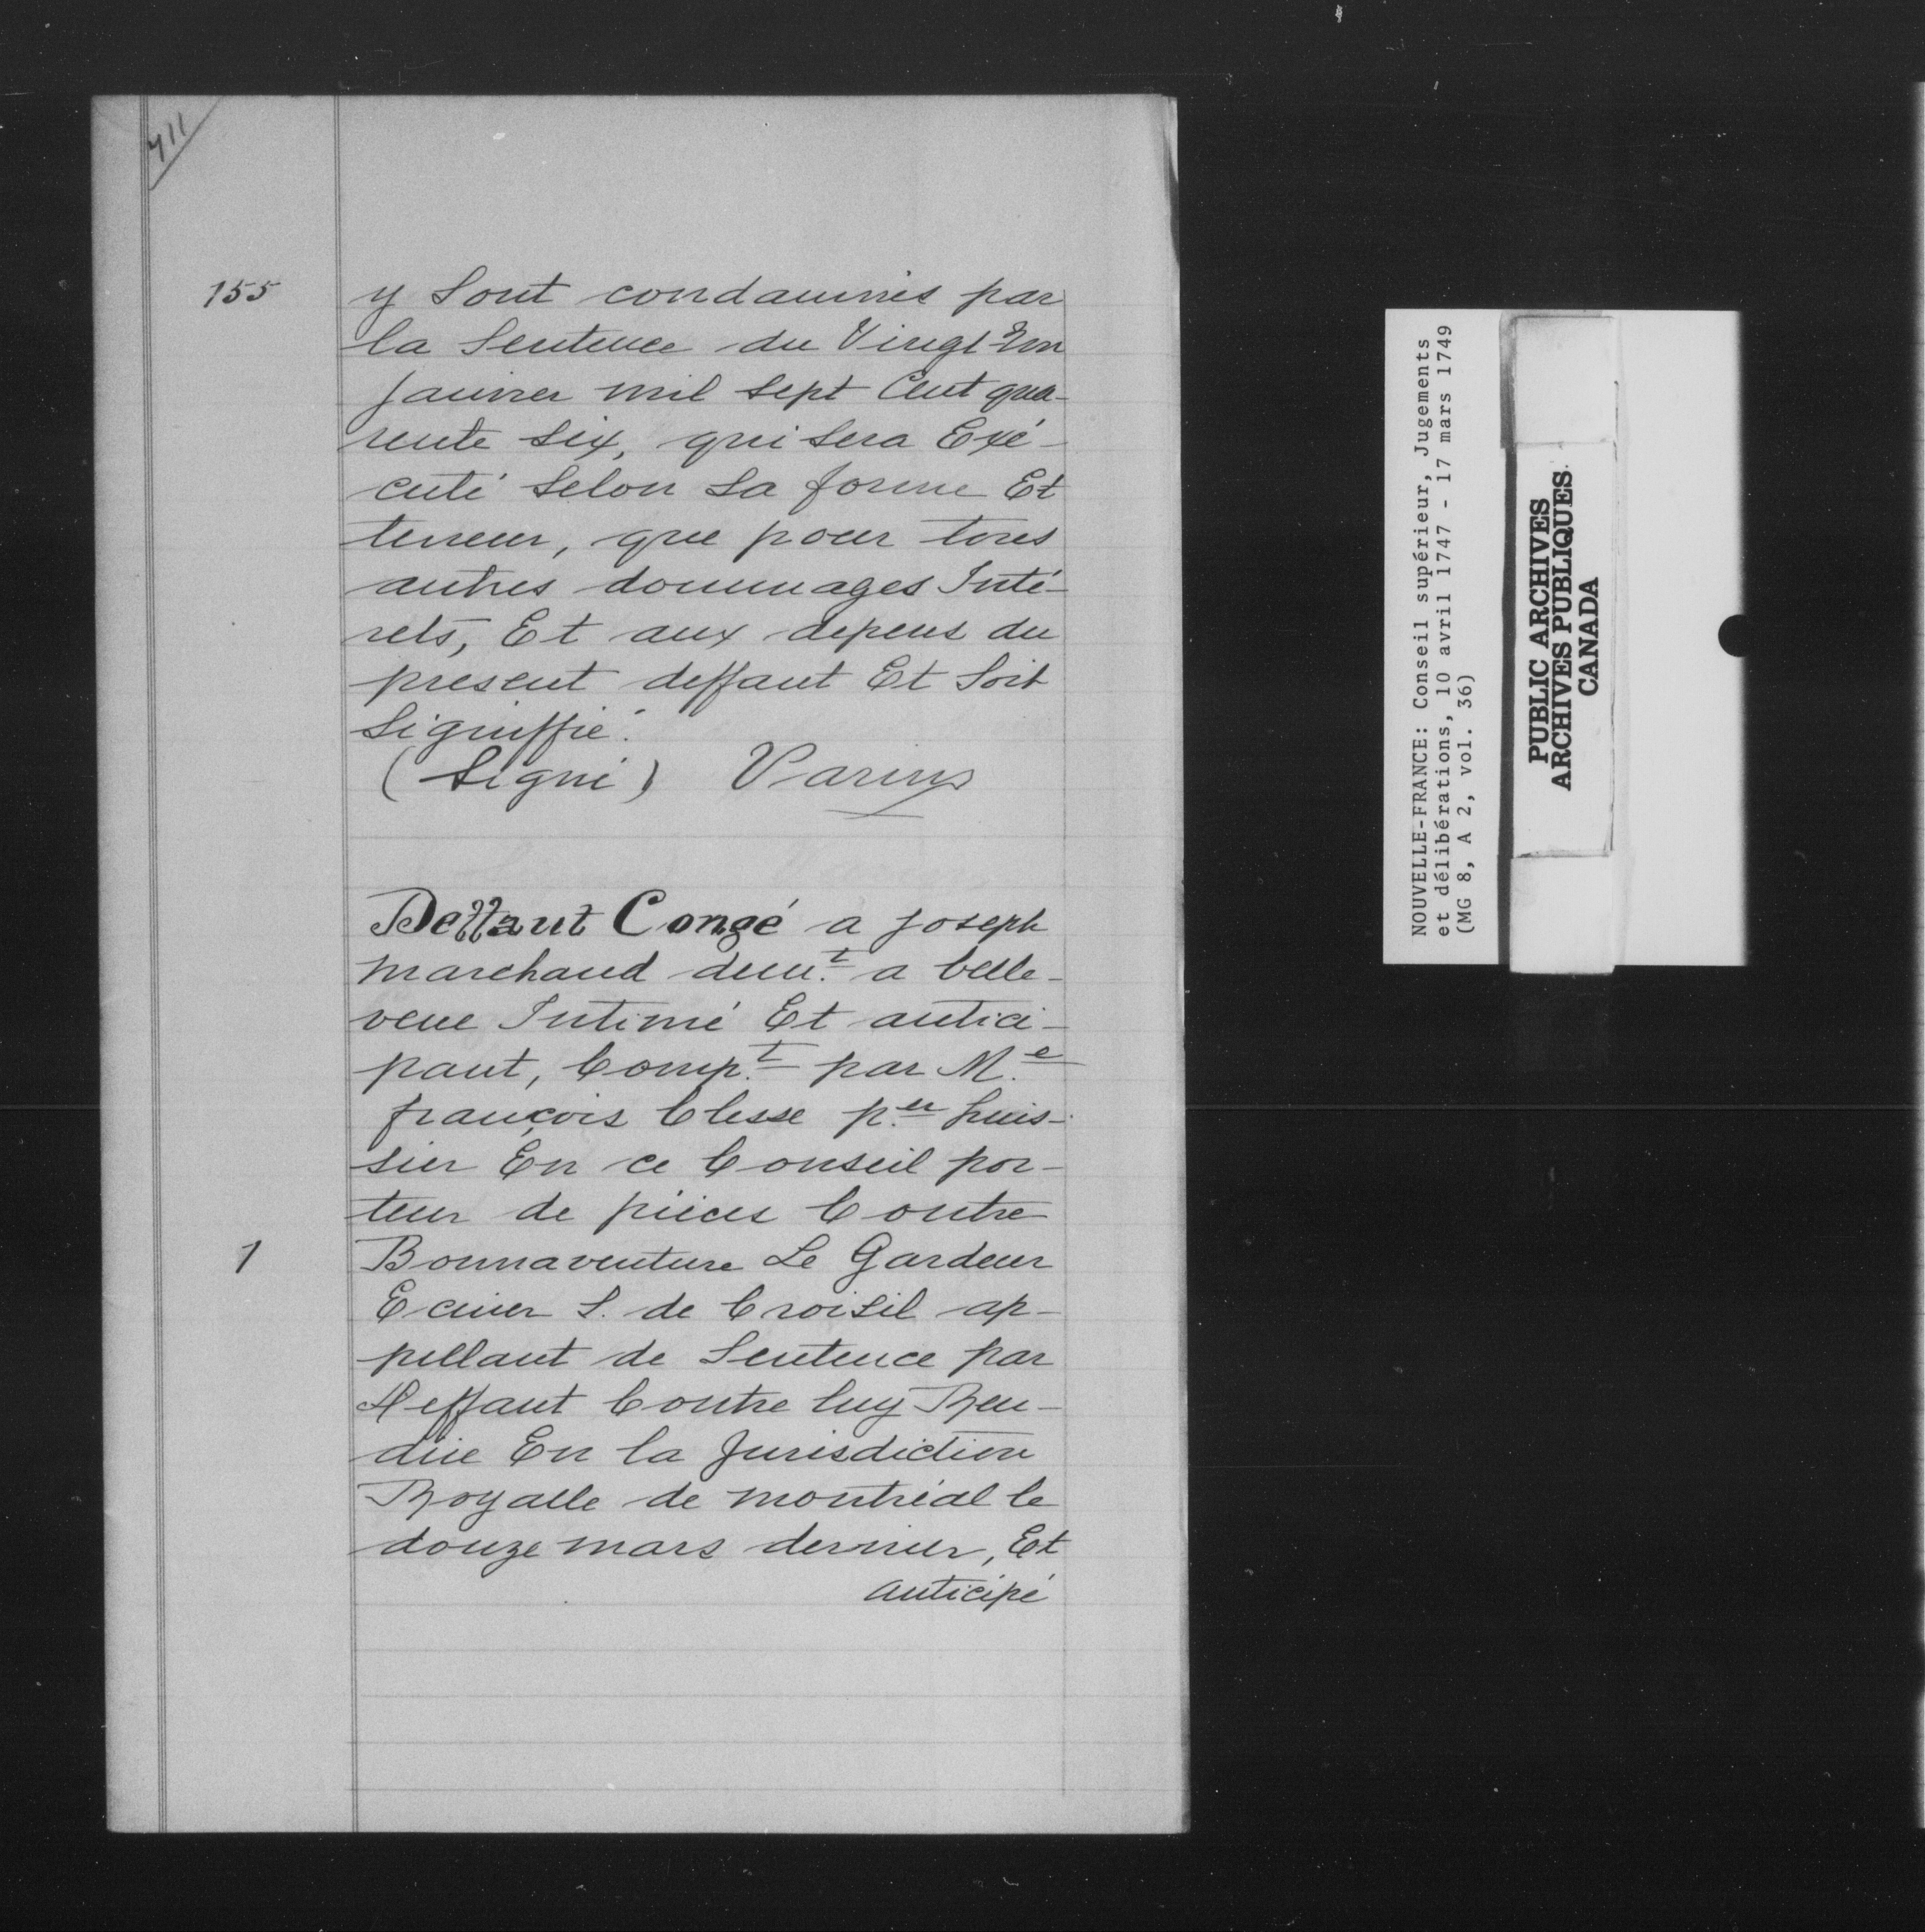 411
155
y sont condamnés par
la Sentence du Vingt Un
Janvier mil sept Cent qua-
rente six, qui sera Exé-
cuté selon sa forme Et
teneur, que pour tous
autres dommages Inté-
rets, Et aux depens du
present deffaut Et soit
signiffié.
(Signé) Varin
Deffaut Congé a Joseph
marchand dem.t a belle-
veue Intimé Et antici-
pant, Comp.t par M.e
françois Clesse p.er huis-
sier En ce Conseil por-
teur de piéces Contre
1
Bonnaventure Le Gardeur
Ecuier S. de Croisil ap-
pellant de Sentence par
deffaut Contre luy Ren-
düe En la Jurisdiction
Royalle de montréal le
douze mars dernier, Et
anticipé
NOUVELLE-FRANCE: Conseil supérieur, Jugements
et délibérations, 10 avril 1747 - 17 mars 1749
(MG 8, A 2, vol. 36)
PUBLIC ARCHIVES
ARCHIVES PUBLIQUES
CANADA